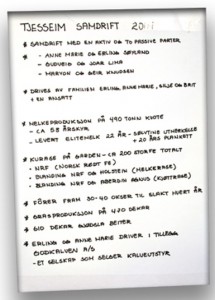 TJESSEIM SAMDRIFT 20
* SAMDRIFT MED EN AKTIV OG TO PASSIVE PARTER
* - ANNE MARIE OG ERLING
- GUDVEIG OG JOAR LIMA
- MARYON OG GEIR KNUDSEN
* DRIVES AV FAMILIEN ERLING, ANNE MARIE, SILJE OG BRIT
+ EN ANSATT
* MELKEPRODUKSJON PÅ 490 TONN KVOTE
- CA 58 ÅRSKYR
- LEVERT ELITEMELK 22 ÅR -
+ 20 ÅRS
* KURASE PÅ GARDEN - CA 200 STORFE TOTALT
- NRF (NORSK RØDT FE)
- BLANDING NRF OG HOLSTEIN (MELKERASE)
- BLANDING NRF OG ABERDIN AGNUS (KJØTTRASE)
* FÔRER FRAM 30-40 OKSER TIL SLAKT HVERT ÅR
* GRASPRODUKSJON PÅ 470 DEKAR
* 610 DEKAR GJØDSLA BEITER
* ERLING OG ANNE MARIE DRIVER I TILLEGG
GODKALVEN A/S
- ET SELSKAP SOM SELGER KALVEUTSTYR